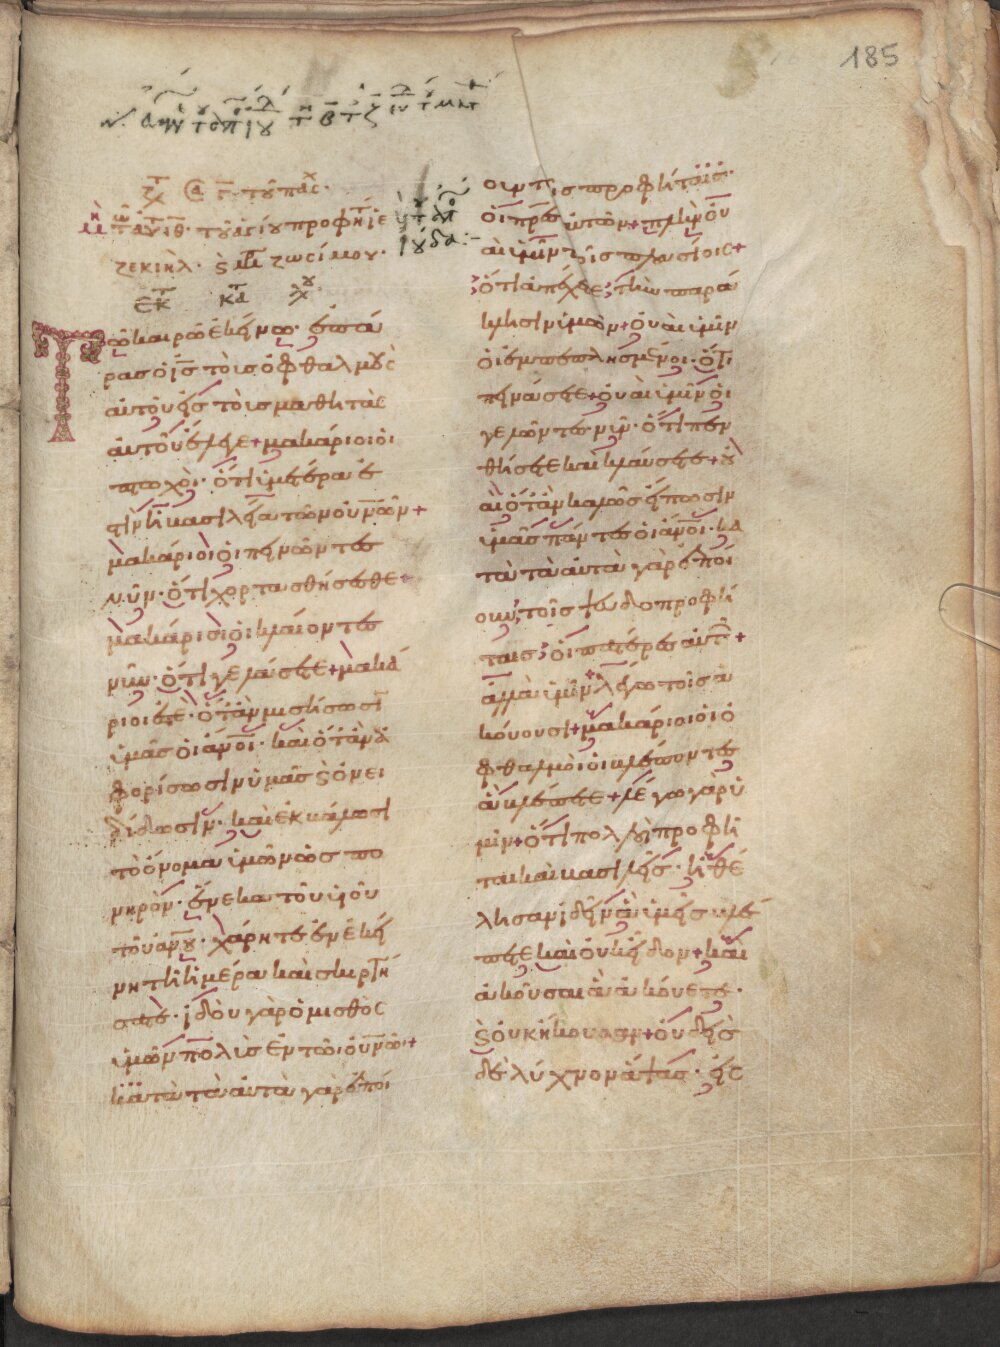 185
τοῦ ἁγίου προφήτου ἰε
ζεκιήλ. ϗ μ ζωσίμου.
Ἐκ κατ λου
Τῶ καιρῶ ἐκείνω· ἐπά
ρας ὁ ἰς τοὺς ὀφθαλμοὺς
αὐτοῦ εἰς τοὺς μαθητὰς
αὐτοῦ ἔλεγε + μακάριοι οἱ
πτωχοὶ· ὅτι ὑμετέρα ἐ
στὶν ἡ βασιλεία τῶν οὐνῶν +
μακάριοι οἱ πεινῶντες
νῦν· ὅτι χορτασθήσεσθε +
μακάριοι οἱ κλαίοντες
νῦν· ὅτι γελάσετε + μακά
ριοι ἐστὲ· ὅταν μισήσωσι
ὑμᾶς οἱ ἄνοι· καὶ ὅταν ἀ
φορίσωσιν ὑμᾶς ϗ ὀνει
δίσωσιν· καὶ ἐκβάλωσι
τὸ ὄνομα ὑμῶν ὡς πο
νηρὸν· ἕνεκα τοῦ υἱοῦ
τοῦ ἀνου· χάρητε ἐν ἐκεί
νη τῆ ἡμέρα καὶ σκιρτή
σατε· ἰδοὺ γὰρ ὁ μισθὸς
ὑμῶν πολὺς ἐν τῶ οὐνῶ +
κατὰ ταὐτὰ γὰρ ἐποί
ουν τοῖς προφήταις·
οἱ πρες αὐτῶν + πλὴν οὐ
αὶ ὑμῖν τοῖς πλουσίοις +
ὅτι ἀπέχετε τὴν παρά
κλησιν ὑμῶν + οὐαὶ ὑμῖν
οἱ ἐμπεπλησμένοι· ὅτι
πεινάσετε + οὐαὶ ὑμῖν οἱ
γελῶντες νῦν· ὅτι πεν
θήσετε καὶ κλαύσετε + οὐ
αὶ ὅταν καλῶς εἴπωσιν
ὑμᾶς πάντες οἱ ἄνοι· κα
τὰ ταὐτὰ γὰρ ἐποί
ουν τοῖς ψευδοπροφή
ταις οἱ πατέρες αὐτῶν +
ἀλλὰ ὑμῖν λέγω τοῖς ἀ
κούουσι + μακάριοι οἱ ὀ
φθαλμοὶ οἱ βλέποντες
ἃ βλέπετε + λέγω γὰρ ὑ
μῖν + ὅτι πολλοὶ προφῆ
ται καὶ βασιλεῖς· ἠθέ
λησαν ἰδεῖν ἃ ὑμεῖς βλέ
πετε καὶ οὐκ εἶδον + καὶ
ἀκοῦσαι ἃ ἀκούετε·
ϗ οὐκ ἤκουσαν + οὐδεὶς
δὲ λύχνον ἅψας· εἰς